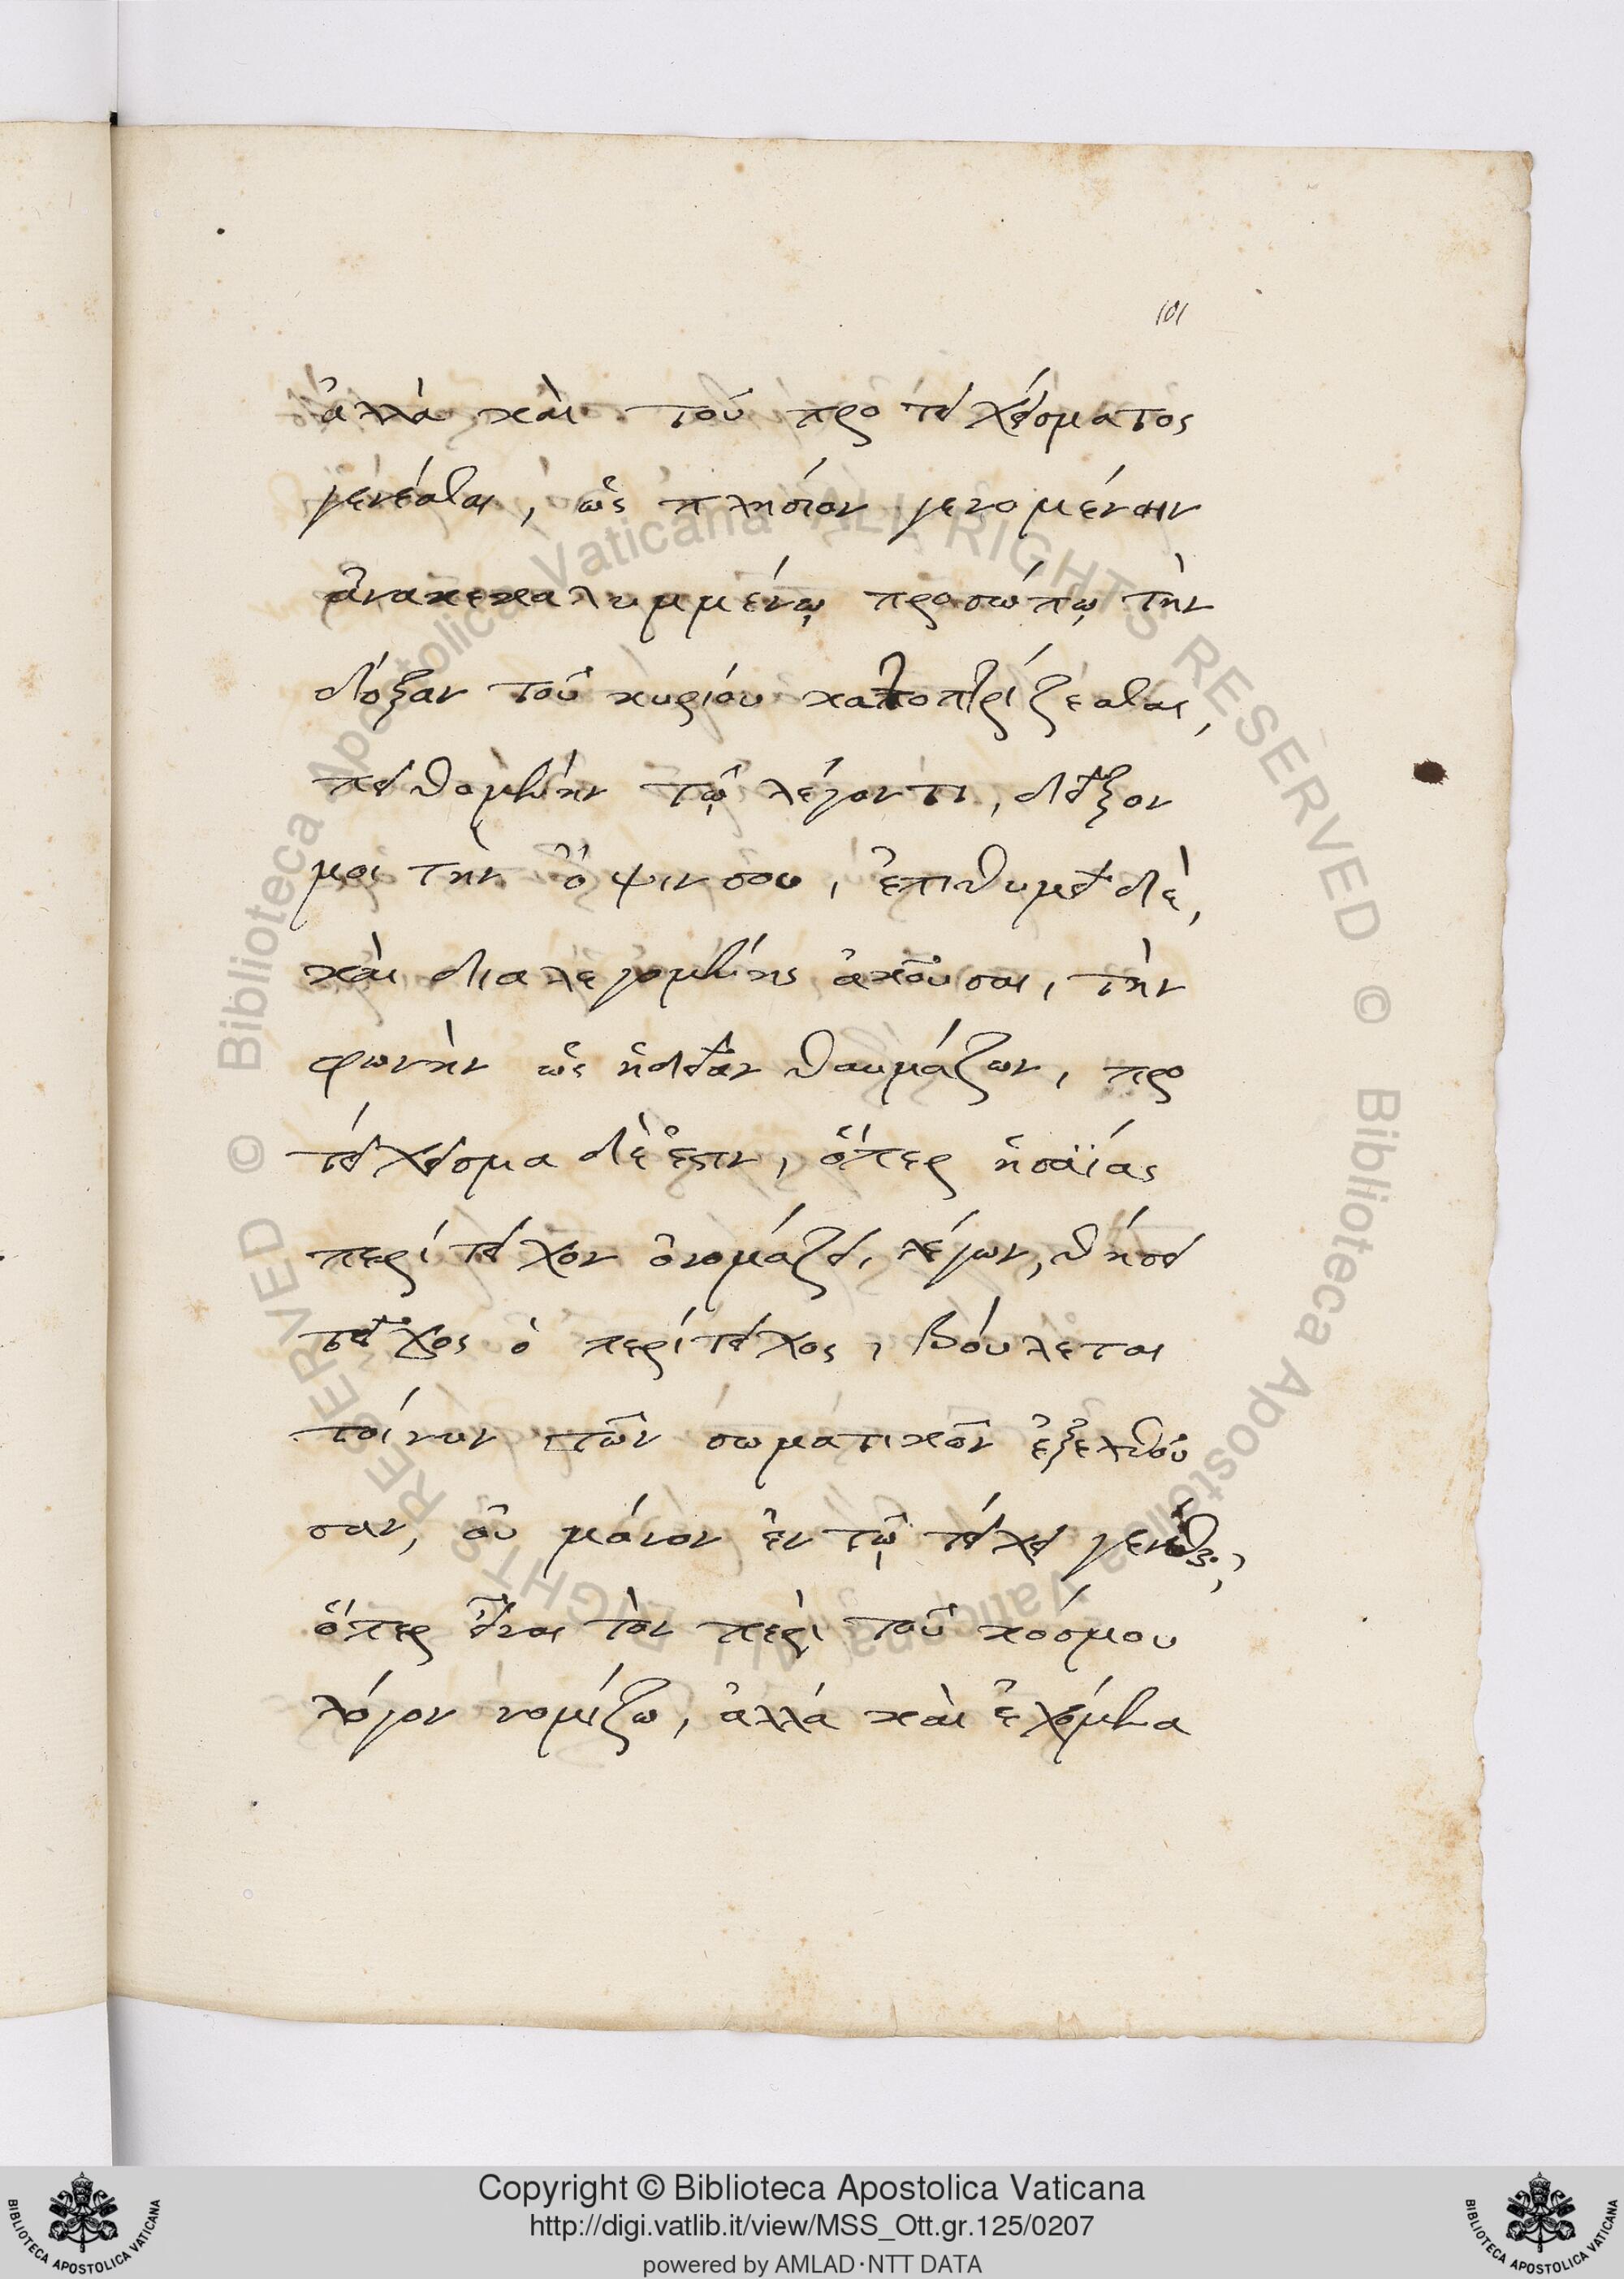 101
ἀλλὰ καὶ τοῦ προτειχίσματος
γενέσθαι, ὡς πλησίον γενομένην
ἀνακεκαλυμμένῳ προσώπῳ τὴν
δόξαν τοῦ κυρίου κατοπτρίζεσθαι,
πειθομένην τῷ λέγοντι, δεῖξον
μοι τὴν ὄψιν σου, ἐπιθυμεῖ δὲ,
καὶ διαλεγομένης ἀκοῦσαι, τὴν
φωνὴν ὡς ἡδεῖαν θαυμάζων, προ
τείχεισμα δὲ ἐστιν, ὅπερ ἡσαΐας
περίτειχον ὀνομάζει, λέγων, θήσει
τεῖχος ὁ περίτειχος, βούλεται
τοίνυν τῶν σωματικῶν ἐξελθοῦ
σαν, οὐ μόνον ἐν τῷ τείχει γενέσθαι,
ὅπερ εἶναι τὸν περὶ τοῦ κόσμου
λόγον νομίζω, ἀλλὰ καὶ ἐχόμενα
© Biblioteca Apostolica Vaticana ALL RIGHTS RESERVED © Biblioteca Apostolica Vaticana ALL RIGHTS RESERVED
Copyright © Biblioteca Apostolica Vaticana
http://digi.vatlib.it/view/MSS_Ott.gr.125/0207
powered by AMLAD·NTT DATA
BIBLIOTECA APOSTOLICA VATICANA
BIBLIOTECA APOSTOLICA VATICANA